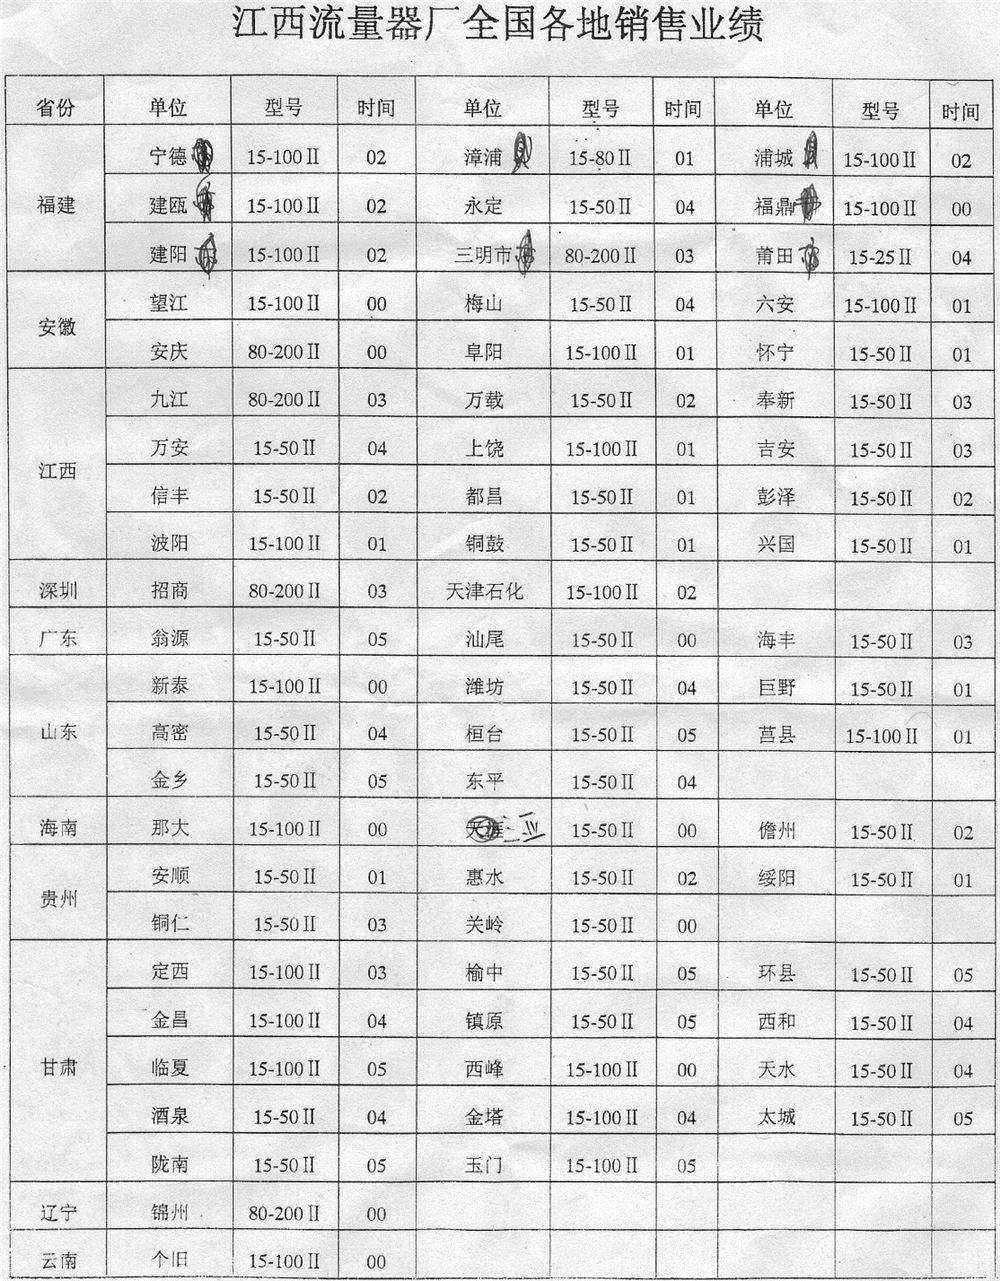 江西流量器厂全国各地销售业绩
省份 单位 型号 时间 单位 型号 时间 单位 型号 时间
福建 宁德 15-100Ⅱ 02 漳浦 15-80Ⅱ 01 浦城 15-100Ⅱ 02
建瓯 15-100Ⅱ 02 永定 15-50Ⅱ 04 福鼎 15-100Ⅱ 00
建阳 15-100Ⅱ 02 三明市 80-200Ⅱ 03 莆田 15-25Ⅱ 04
安徽 望江 15-100Ⅱ 00 梅山 15-50Ⅱ 04 六安 15-100Ⅱ 01
安庆 80-200Ⅱ 00 阜阳 15-100Ⅱ 01 怀宁 15-50Ⅱ 01
江西 九江 80-200Ⅱ 03 万载 15-50Ⅱ 02 奉新 15-50Ⅱ 03
万安 15-50Ⅱ 04 上饶 15-100Ⅱ 01 吉安 15-50Ⅱ 03
信丰 15-50Ⅱ 02 都昌 15-50Ⅱ 01 彭泽 15-50Ⅱ 02
波阳 15-100Ⅱ 01 铜鼓 15-50Ⅱ 01 兴国 15-50Ⅱ 01
深圳 招商 80-200Ⅱ 03 天津石化 15-100Ⅱ 02
广东 翁源 15-50Ⅱ 05 汕尾 15-50Ⅱ 00 海丰 15-50Ⅱ 03
山东 新泰 15-100Ⅱ 00 潍坊 15-50Ⅱ 04 巨野 15-50Ⅱ 01
高密 15-50Ⅱ 04 桓台 15-50Ⅱ 05 莒县 15-100Ⅱ 01
金乡 15-50Ⅱ 05 东平 15-50Ⅱ 04
海南 那大 15-100Ⅱ 00 三亚 15-50Ⅱ 00 儋州 15-50Ⅱ 02
贵州 安顺 15-50Ⅱ 01 惠水 15-50Ⅱ 02 绥阳 15-50Ⅱ 01
铜仁 15-50Ⅱ 03 关岭 15-50Ⅱ 00
甘肃 定西 15-100Ⅱ 03 榆中 15-50Ⅱ 05 环县 15-50Ⅱ 05
金昌 15-100Ⅱ 04 镇原 15-50Ⅱ 05 西和 15-50Ⅱ 04
临夏 15-100Ⅱ 05 西峰 15-100Ⅱ 00 天水 15-50Ⅱ 04
酒泉 15-50Ⅱ 04 金塔 15-100Ⅱ 04 太城 15-50Ⅱ 05
陇南 15-50Ⅱ 05 玉门 15-100Ⅱ 05
辽宁 锦州 80-200Ⅱ 00
云南 个旧 15-100Ⅱ 00